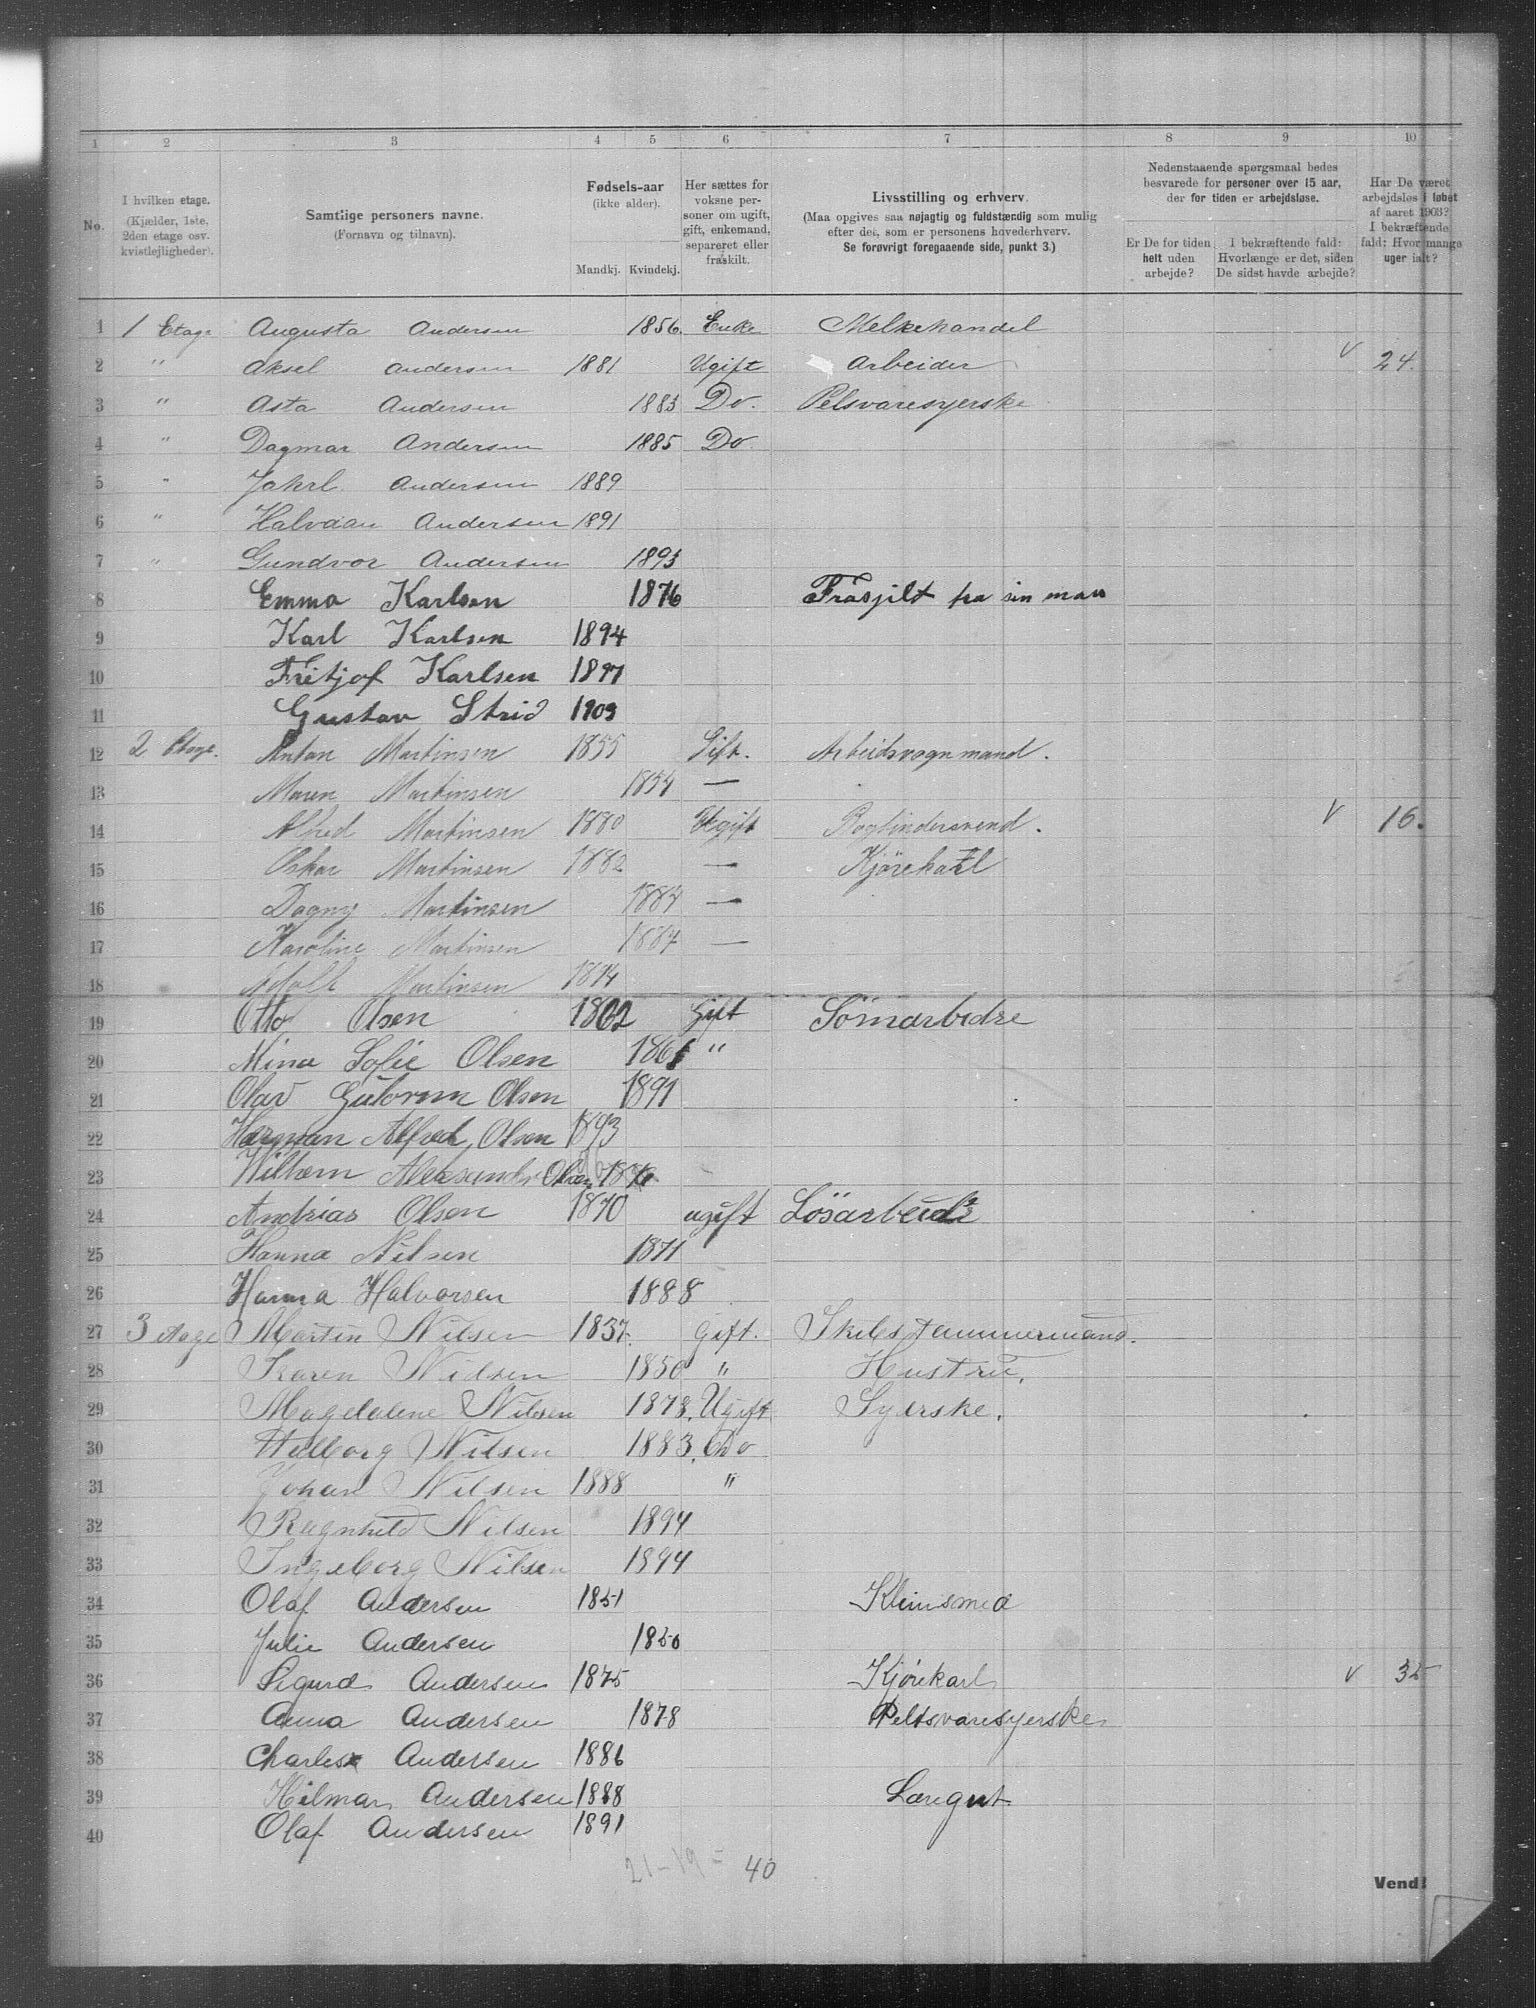 1 2 3 4 5 6 7 8 9 10
No.
I hvilken etage. (Kjælder, 1ste, 2den etage osv. kvistlejligheder).
Samtlige personers navne. (Fornavn og tilnavn).
Fødsels-aar (ikke alder). Mandkj. Kvindekj.
Her sættes for voksne personer om ugift, gift, enkemand, separeret eller fraskilt.
Livsstilling og erhverv. (Maa opgives saa nøjagtig og fuldstændig som mulig efter det, som er personens hovederhverv. Se forøvrigt foregaaende side, punkt 3.)
Nedenstaaende spørgsmaal bedes besvarede for personer over 15 aar, der for tiden er arbejdsløse.
Er De for tiden helt uden arbejde?
I bekræftende fald: Hvorlænge er det, siden De sidst havde arbejde?
Har De været arbejdsløs i løbet af aaret 1903? I bekræftende fald: Hvor mange uger ialt?
1 1 Etage Augusta Andersen 1856. Enke Melkehandel
2 " Aksel Andersen 1881 Ugift Arbeider v 24.
3 " Asta Andersen 1883 Do. Pelsvaresyerske
4 " Dagmar Andersen 1885 Do
5 " Jahrl Andersen 1889
6 " Halvdan Andersen 1891
7 " Gundvor Andersen 1893
8 Emma Karlsen 1876 Frasjilt fra sin man
9 Karl Karlsen 1894
10 Fritjof Karlsen 1897
11 Gustav Strid 1903
12 2 Etage. Anton Martinsen 1855 Gift. Arbeidsvognmand.
13 Maren Martinsen 1854 —
14 Alfred Martinsen 1880 Ugift Bogbindersvend. v 16.
15 Oskar Martinsen 1882 — Kjørekarl
16 Dagny Martinsen 1884 —
17 Karoline Martinsen 1887 —
18 Adolf Martinsen 1894
19 Otto Olsen 1862 Gift Sömarbedre
20 Mina Sofie Olsen 1861 "
21 Olav Gutorm Olsen 1891
22 Herman Alfred Olsen 1893
23 Wilhem Aleksander Olsen
24 Andrias Olsen 1870 ugift Lösarbeide
25 Hanna Nilsen 1871
26 Hanna Halvorsen 1888
27 3 etage Martin Nilsen 1837. gift. Skibstømmermand.
28 Karen Nielsen 1850 " Hustru.
29 Magdalene Nilsen 1878. Ugift Syerske.
30 Valborg Nilsen 1883. Do
31 Johan Nilsen 1888 "
32 Ragnhild Nilsen 1894
33 Ingeborg Nilsen 1894
34 Olaf Andersen 1851 Kleinsmed
35 Julie Andersen 1850
36 Sigurd Andersen 1875 Kjørekarl v 35
37 Anna Andersen 1878 Peltsvaresyerske
38 Charles Andersen 1886
39 Hilmar Andersen 1888 Læregut
40 Olaf Andersen 1891
21-19= 40
Vend!